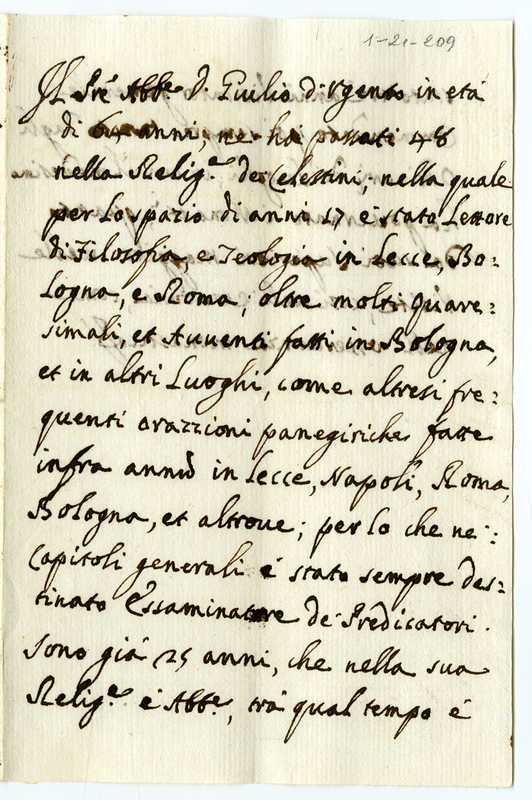 1-21-209
Il Pre Abbe D. Giulio d'Ugento in età
di 64 anni, ne hà passati 48
nella Relige de Celestini, nella quale
per lo spazio di anni 17 è stato Lettore
di Filosofia, e Teologia in Lecce, Bo:
logna, e Roma; oltre molti Quare:
simali, et Avventi fatti in Bologna,
et in altri Luoghi, come altresi fre:
quenti orazzioni panegiriche fatte
infra annũ in Lecce, Napoli, Roma,
Bologna, et altrove; per lo che ne':
Capitoli generali è stato sempre des:
tinato Essaminatore de Predicatori.
Sono già 25 anni, che nella sua
Relige è Abbe, trà qual tempo è